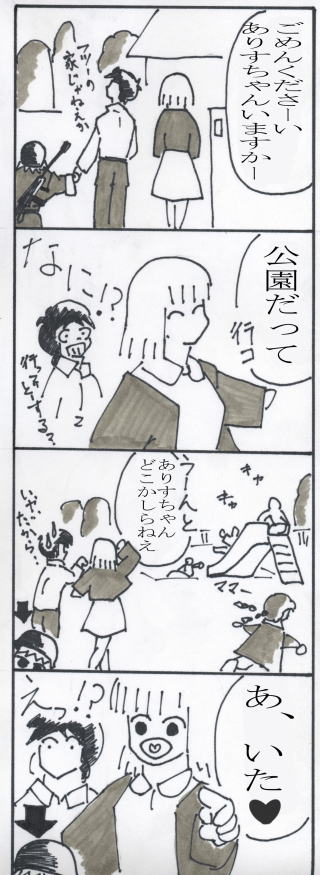 ごめんくださーい
ありすちゃんいますかー
フツーの
家じゃねぇか
公園だって
行コ
なに!?
行ってどーする?
キャ
キャ
うーんと
ありすちゃん
どこかしらねえ
いや、だから…
ママー
あ、いた♥
えっ!?